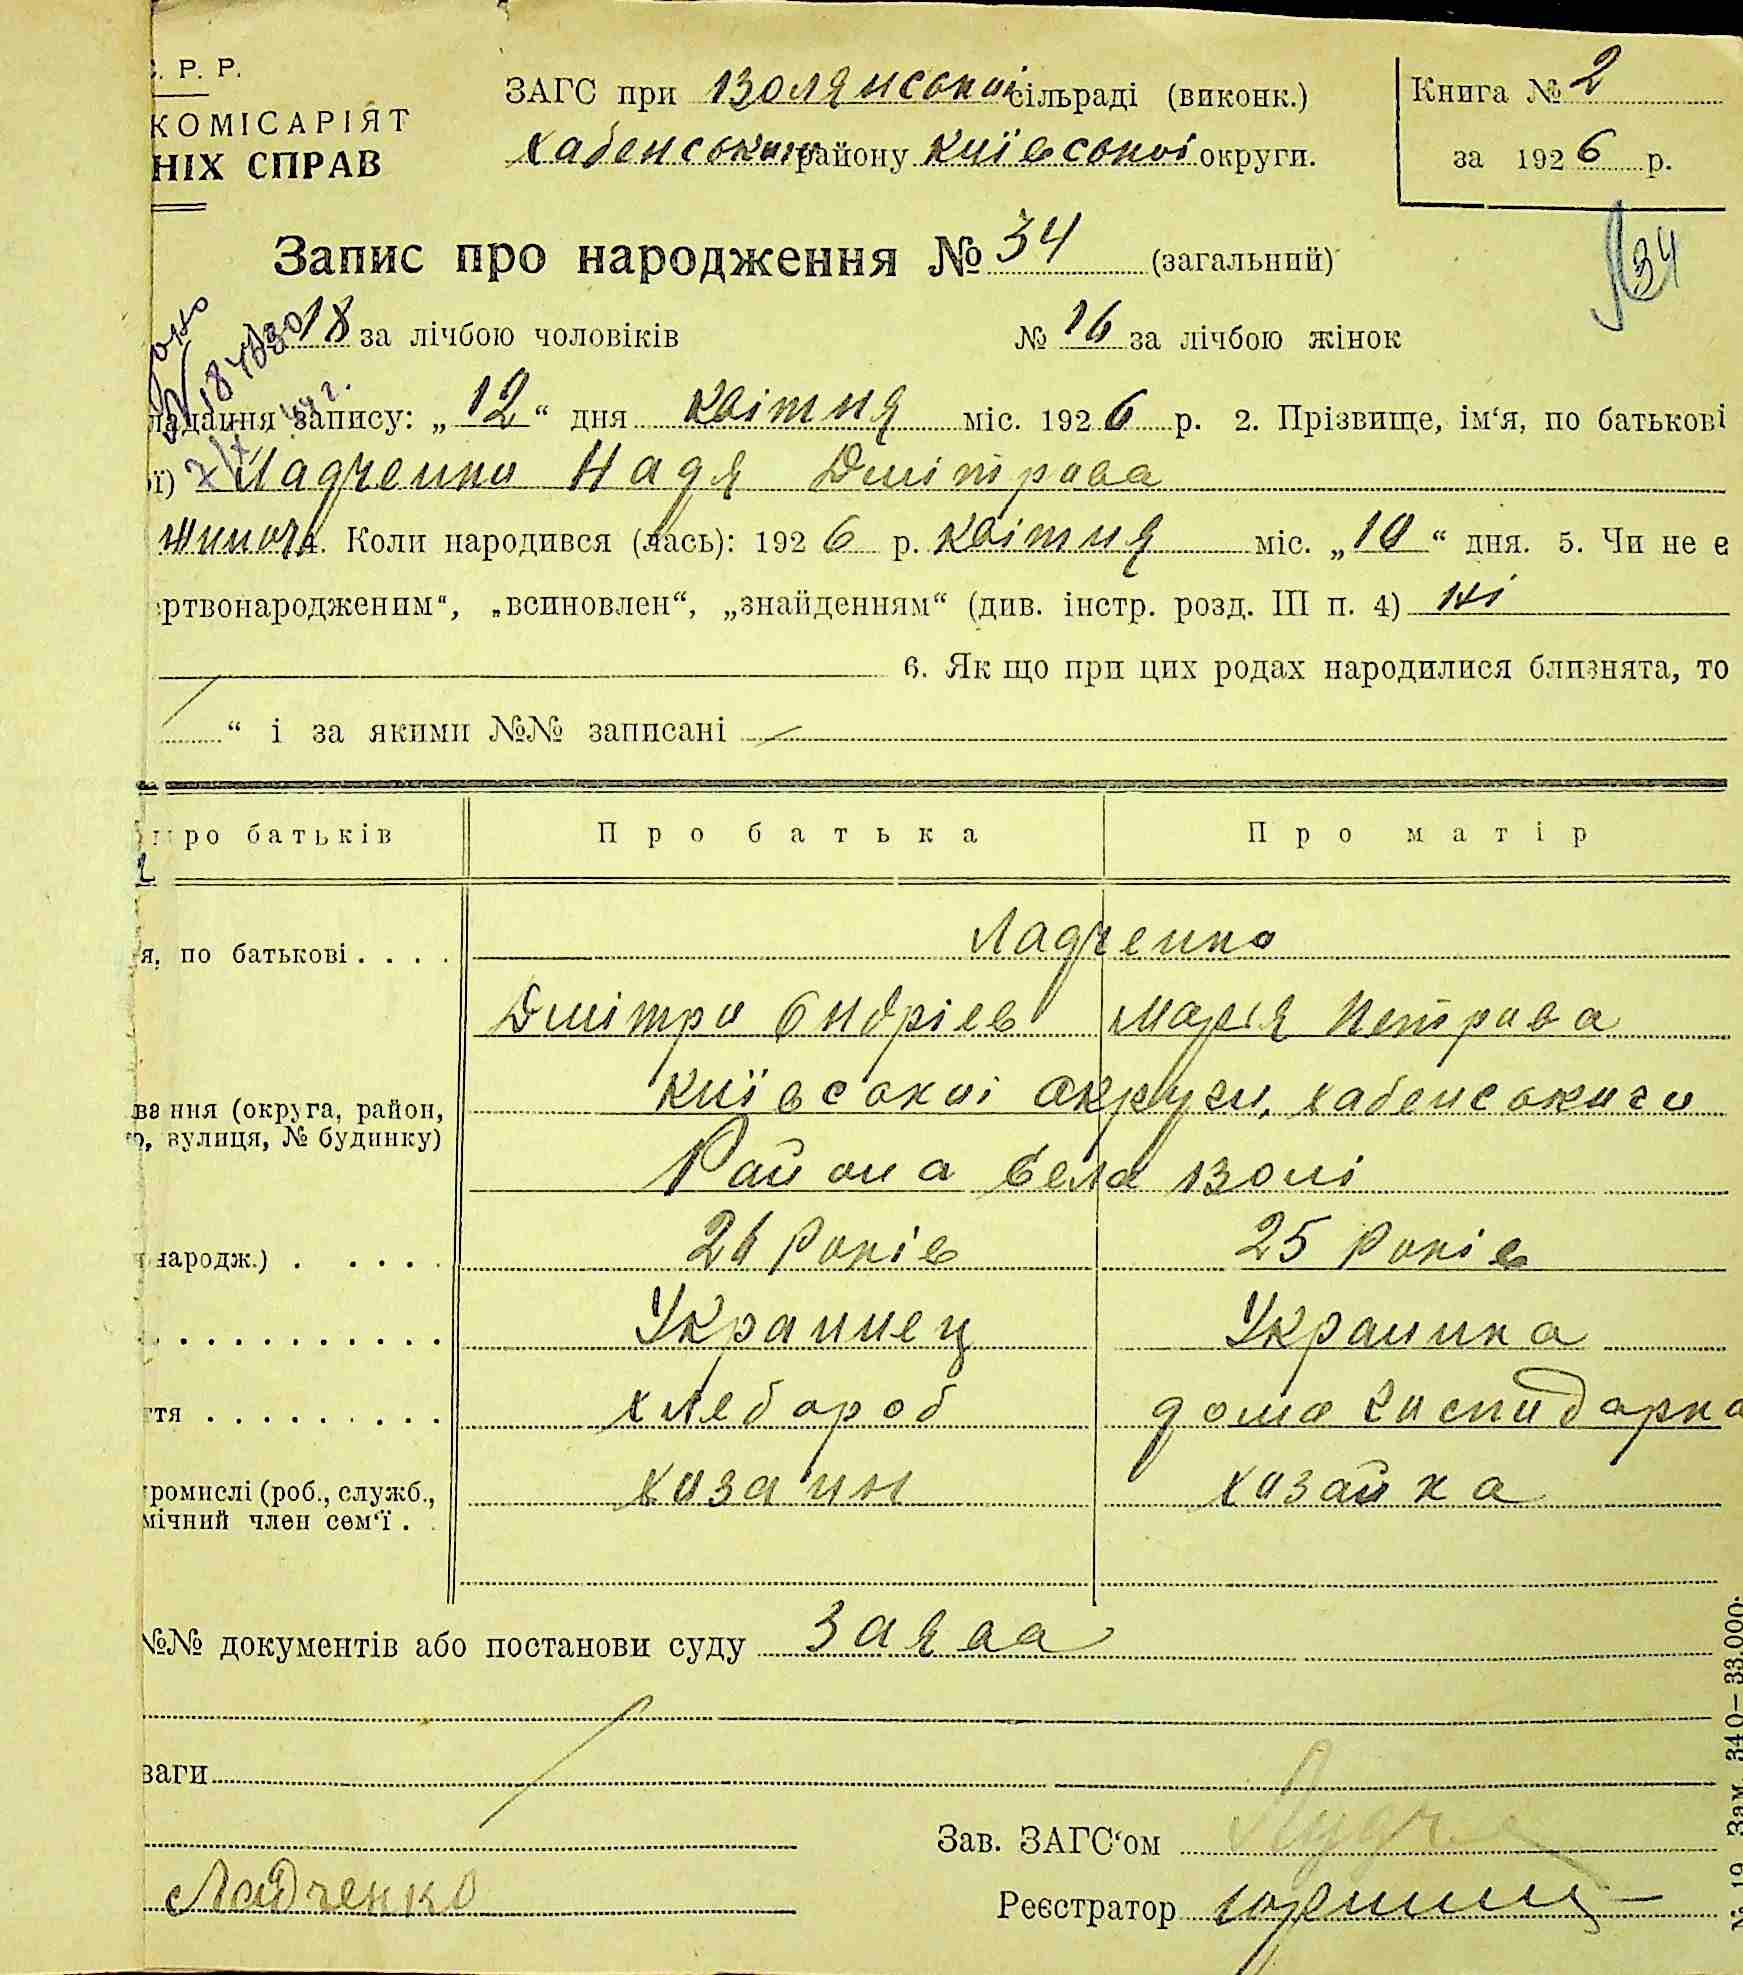 . Р. Р.
КОМІСАРІЯТ
НІХ СПРАВ
ЗАГС при Ізолянської сільраді (виконк.)
Хабенського району Київської округи.
Книга № 2
за 1926 р.
Запис про народження № 34 (загальний)
34
18 за лічбою чоловіків № 16 за лічбою жінок
ладання запису: „12“ дня квітня міс. 1926 р. 2. Прізвище, ім‘я, по батькові
ї) Ладченко Надя Дмітрова
жиноча 4. Коли народився (лась): 1926 р. квітня міс. „10“ дня. 5. Чи не є
ертвонародженим“, „всиновлен“, „знайденням“ (див. інстр. розд. III п. 4) ні
6. Як що при цих родах народилися близнята, то
“ і за якими №№ записані
про батьків Про батька Про матір
я, по батькові . . . . Ладченко
Дмітро Ондріев Марія Петрова
вання (округа, район, Київської округи, хабенського
о, вулиця, № будинку) Району села Ізолі
народж.) . . . . . 26 Років 25 Років
Украинец Украинка
ття . . . . . . . . . хлебороб домо господарка
ромислі (роб., служб., хозаин хозайка
мічний член сем‘ї .
№№ документів або постанови суду Заява
ваги
Зав. ЗАГС‘ом
Ладченко
Реєстратор
№ 19 Зам. 340–33.000.